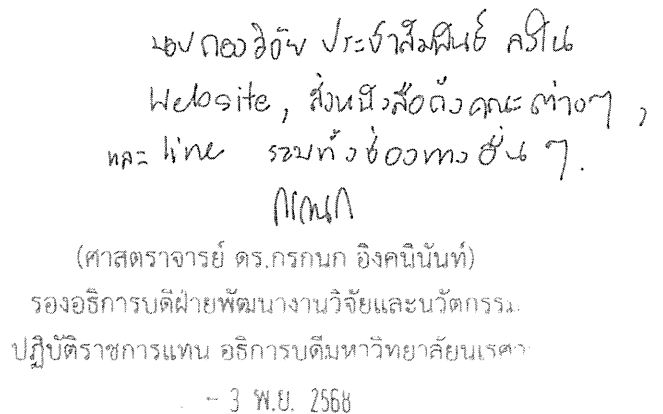 มอบกองวิจัย ประชาสัมพันธ์ ลงใน
Website, ส่งหนังสือถึงคณะต่างๆ,
และ line รวมทั้งช่องทางอื่น ๆ.
กรกนก
(ศาสตราจารย์ ดร.กรกนก อิงคนินันท์)
รองอธิการบดีฝ่ายพัฒนางานวิจัยและนวัตกรรม
ปฏิบัติราชการแทน อธิการบดีมหาวิทยาลัยนเรศวร
- 3 พ.ย. 2568